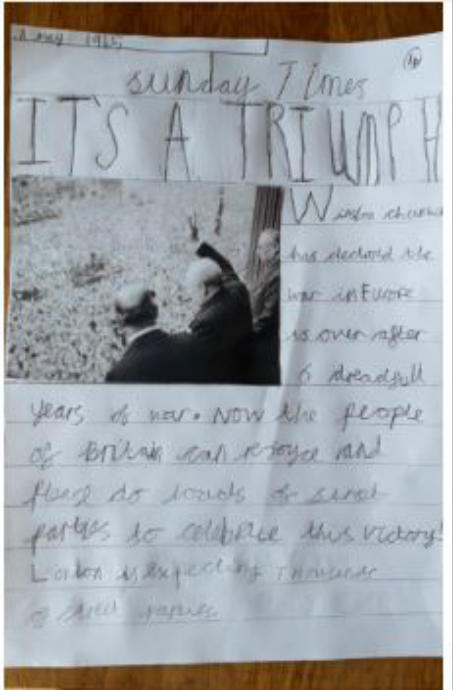 May 1945
Sunday Times
IT'S A TRIUMPH
Winston
has declared the
war in Europe
is over after
6 dreadfull
years of war. Now the people
of Britain can rejoyce and
please do loads of
parties to celebrate this victory!
London is expecting
of street parties